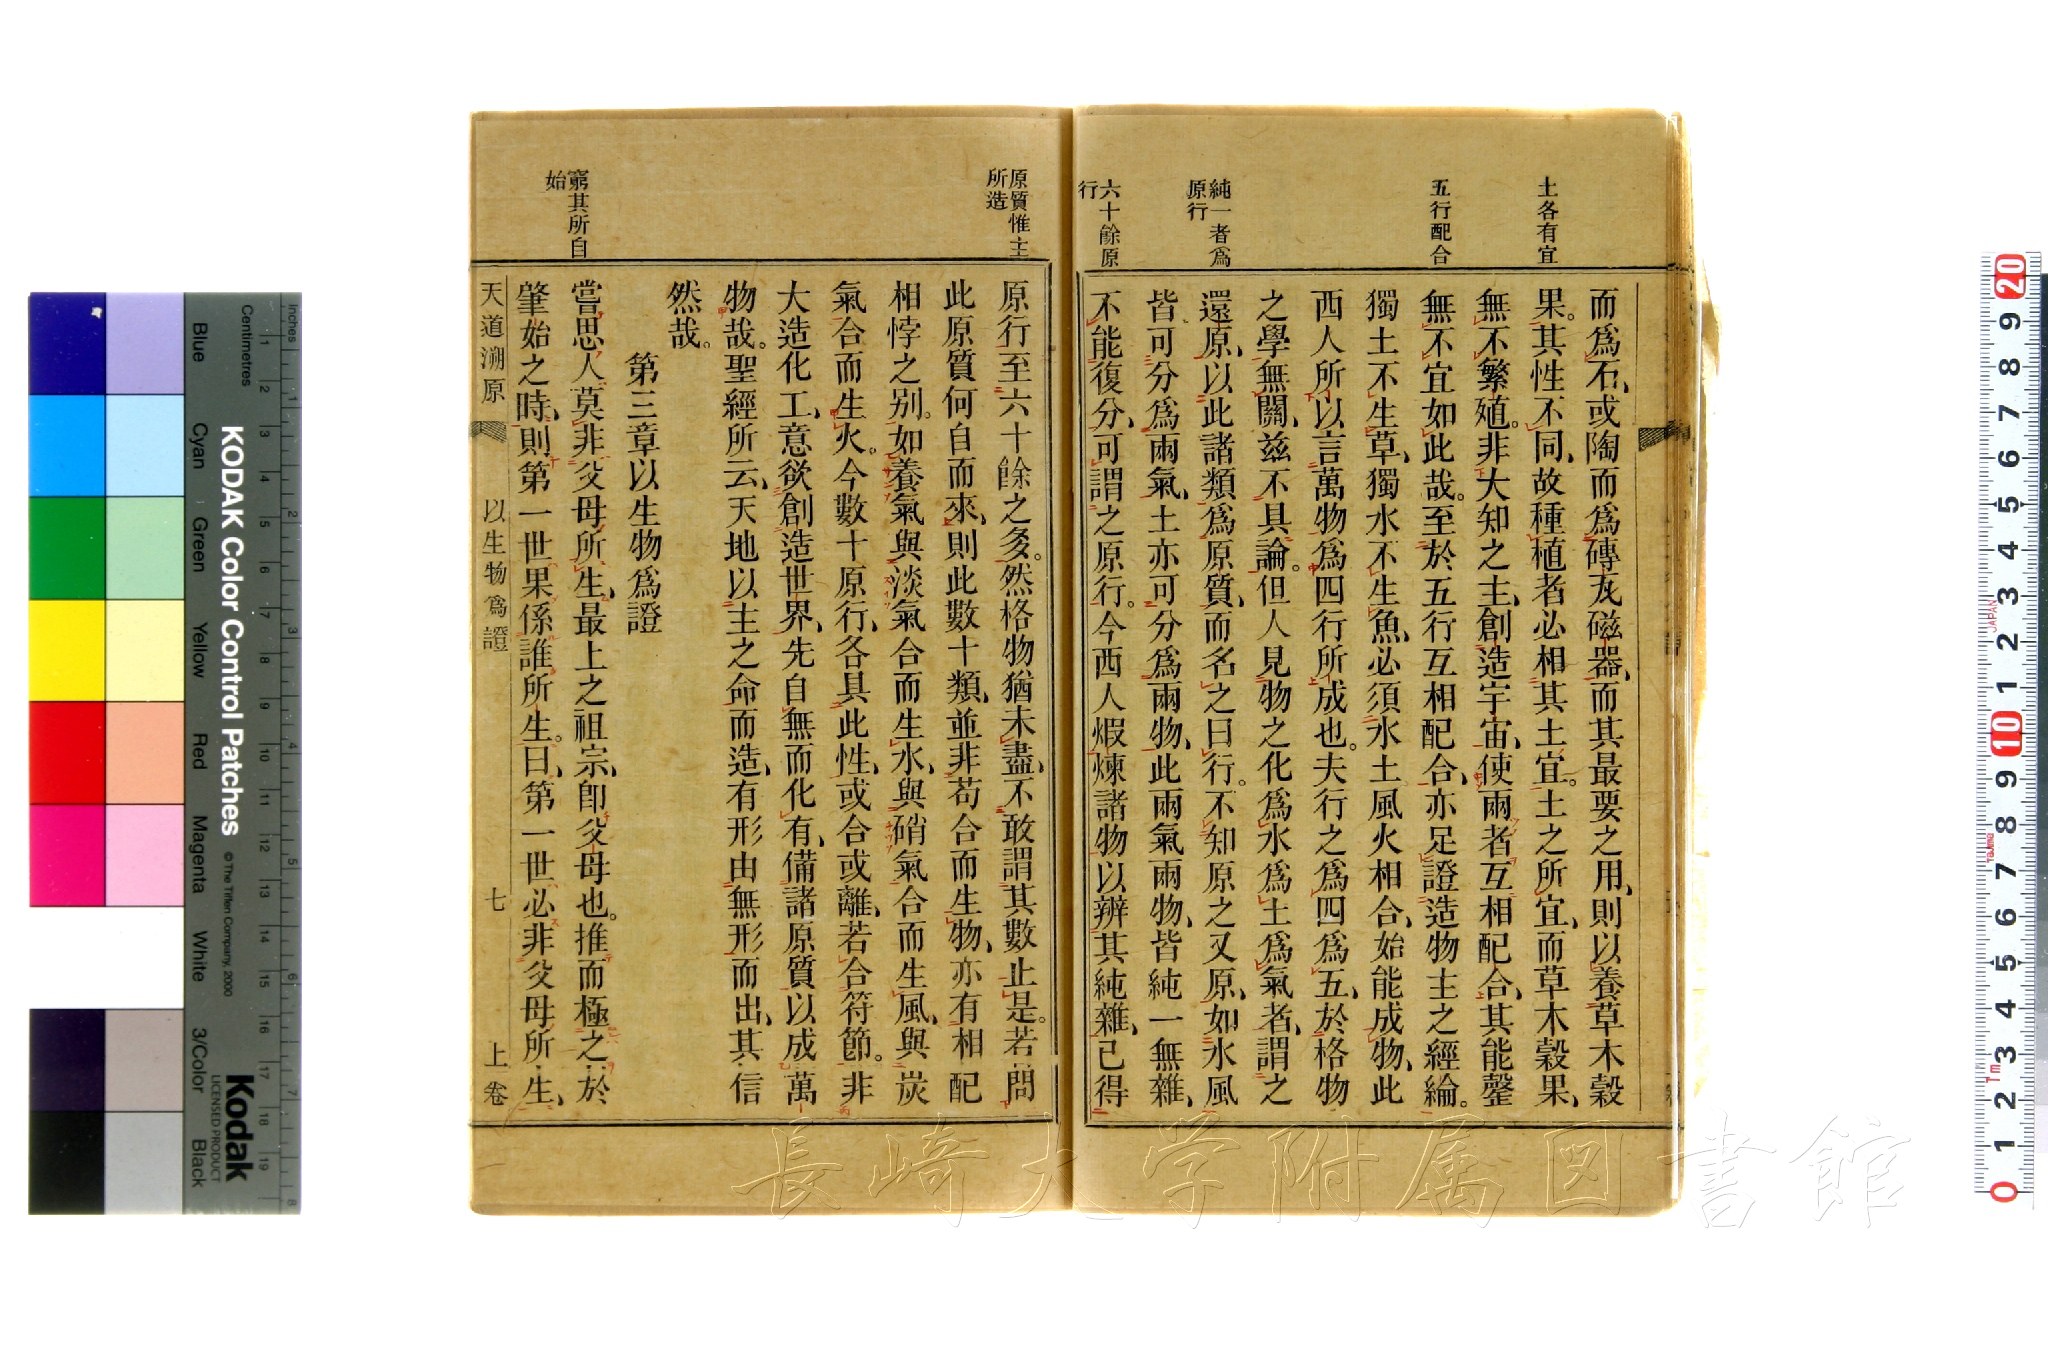 土各有宜
五行配合
純一者爲
原行
六十餘原
行
而爲石、或陶而爲磚瓦磁器、而其最要之用、則以養草木穀
果。其性不同、故種植者必相其土宜。土之所宜、而草木穀果、
無不繁殖。非大知之主、創造宇宙、使兩者互相配合、其能罄
無不宜如此哉。至於五行互相配合、亦足證造物主之經綸。
獨土不生草、獨水不生魚、必須水土風火相合、始能成物、此
西人所以言萬物爲四行所成也。夫行之爲四爲五、於格物
之學無關、兹不具論。但人見物之化爲水爲土爲氣者、謂之
還原、以此諸類爲原質、而名之曰行。不知原之又原、如水風
皆可分爲兩氣、土亦可分爲兩物、此兩氣兩物、皆純一無雜、
不能復分、可謂之原行。今西人煆煉諸物以辨其純雜、已得
原質惟主
所造
窮其所自
始
原行至六十餘之多。然格物猶未盡、不敢謂其數止是。若問
此原質何自而來、則此數十類、並非苟合而生物、亦有相配
相悖之别。如養氣與淡氣合而生水、與硝氣合而生風、與炭
氣合而生火。今數十原行、各具此性、或合或離、若合符節。非
大造化工、意欲創造世界、先自無而化有、備諸原質以成萬
物哉。聖經所云、天地以主之命而造、有形由無形而出、其信
然哉。
第三章以生物爲證
嘗思人莫非父母所生、最上之祖宗、卽父母也。推而極之於
肇始之時、則第一世果係誰所生。曰、第一世必非父母所生、
天道溯原 以生物爲證 七 上卷
KODAK Color Control Patches
© The Tiffen Company, 2000
Kodak
LICENSED PRODUCT
Inches
Centimetres
Blue
Cyan
Green
Yellow
Red
Magenta
White
3/Color
Black
JAPAN
Tajima
長崎大学附属図書館